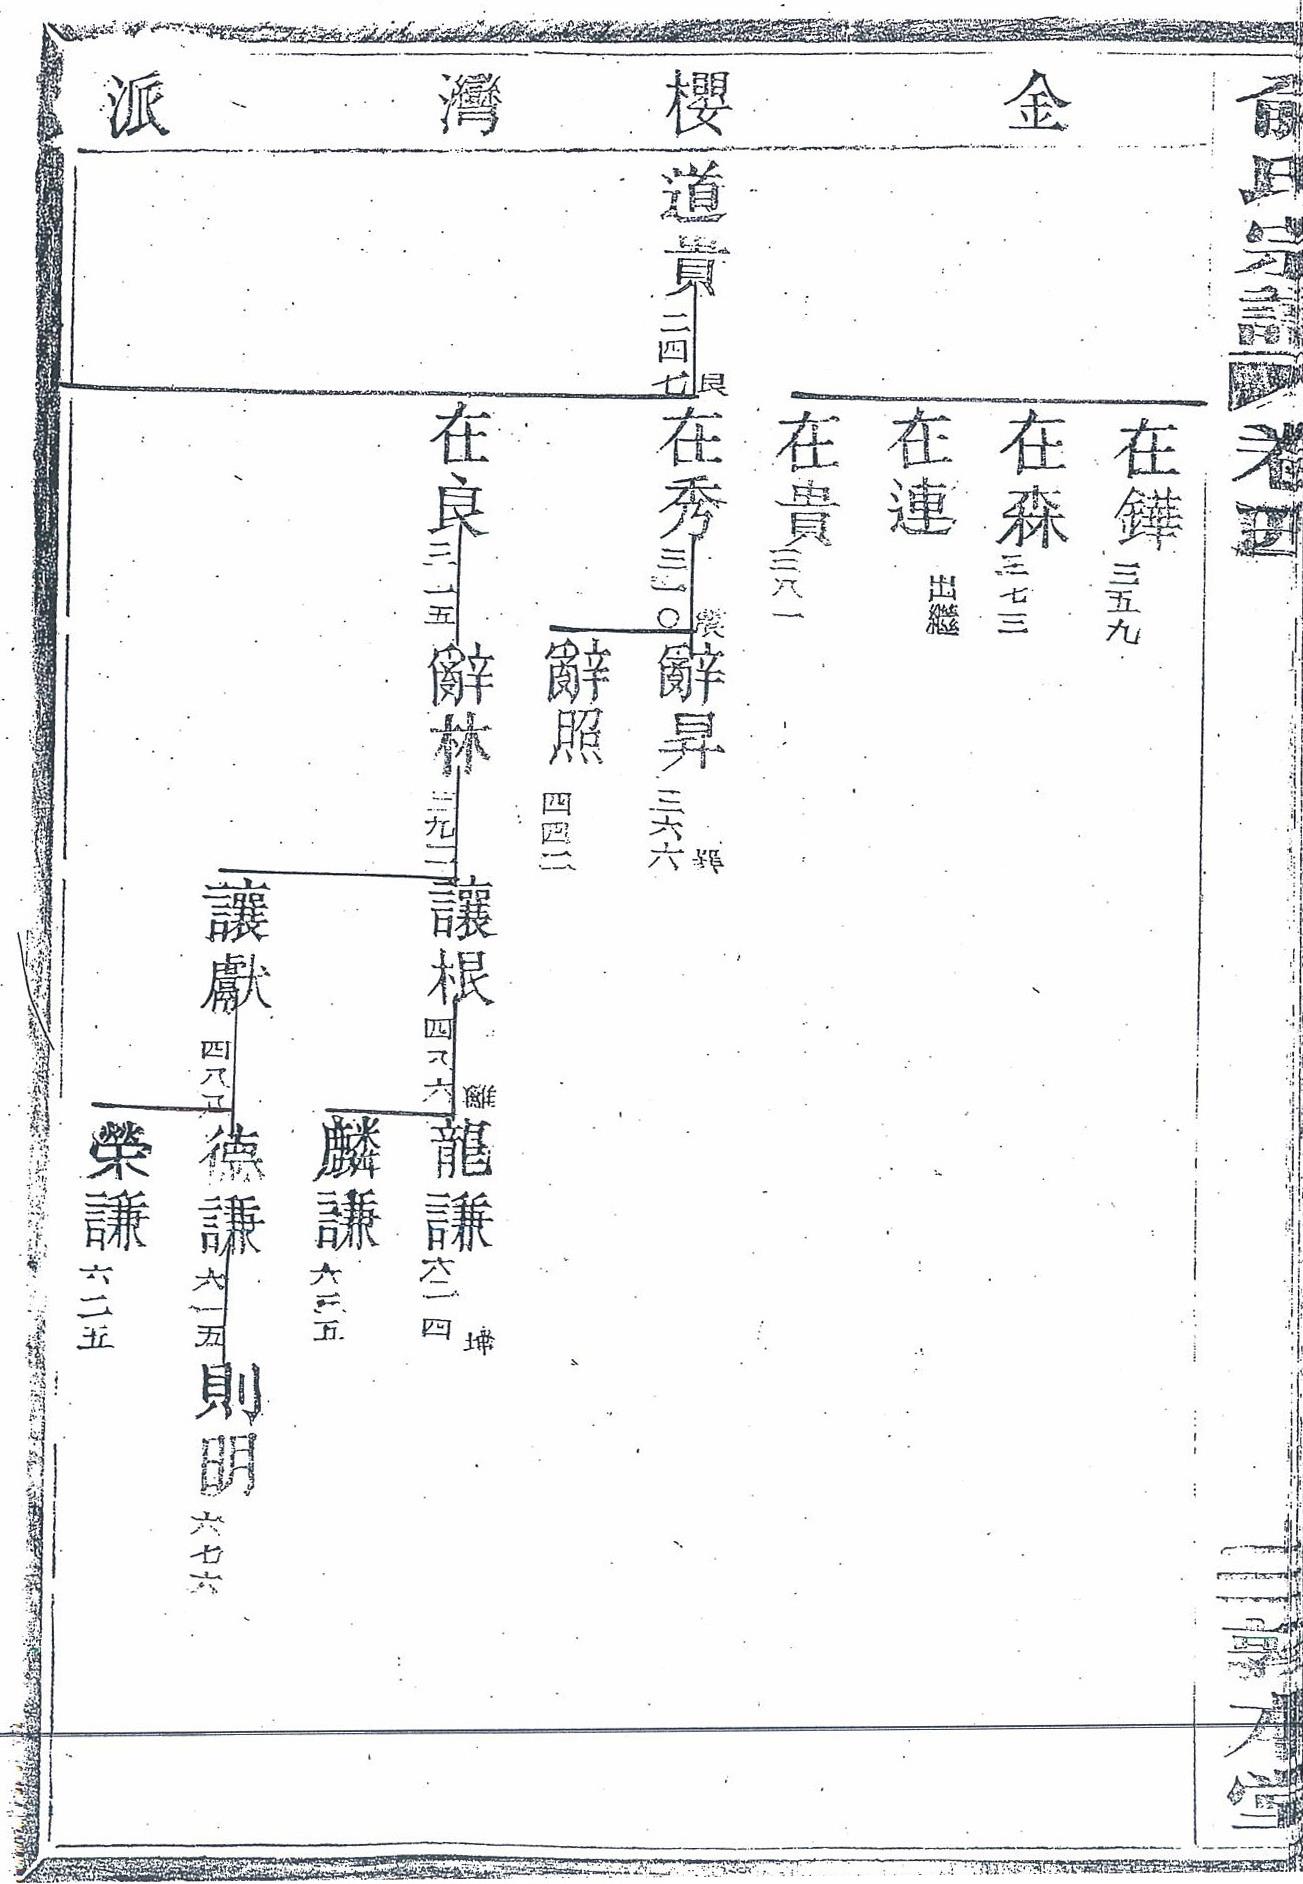 氏宗譜 卷四
金櫻灣派
在鏵 三五九
在森 三七三
在連 出繼
在貴 三八一
道貴 二四七 良
在秀 三一〇
辭昇 三六六
辭照 四四二
在良 三一五
辭林 三九二
讓根 四八六
龍謙 六二四
麟謙 六三五
讓獻 四八八
德謙 六一五
則明 六七六
榮謙 六二五